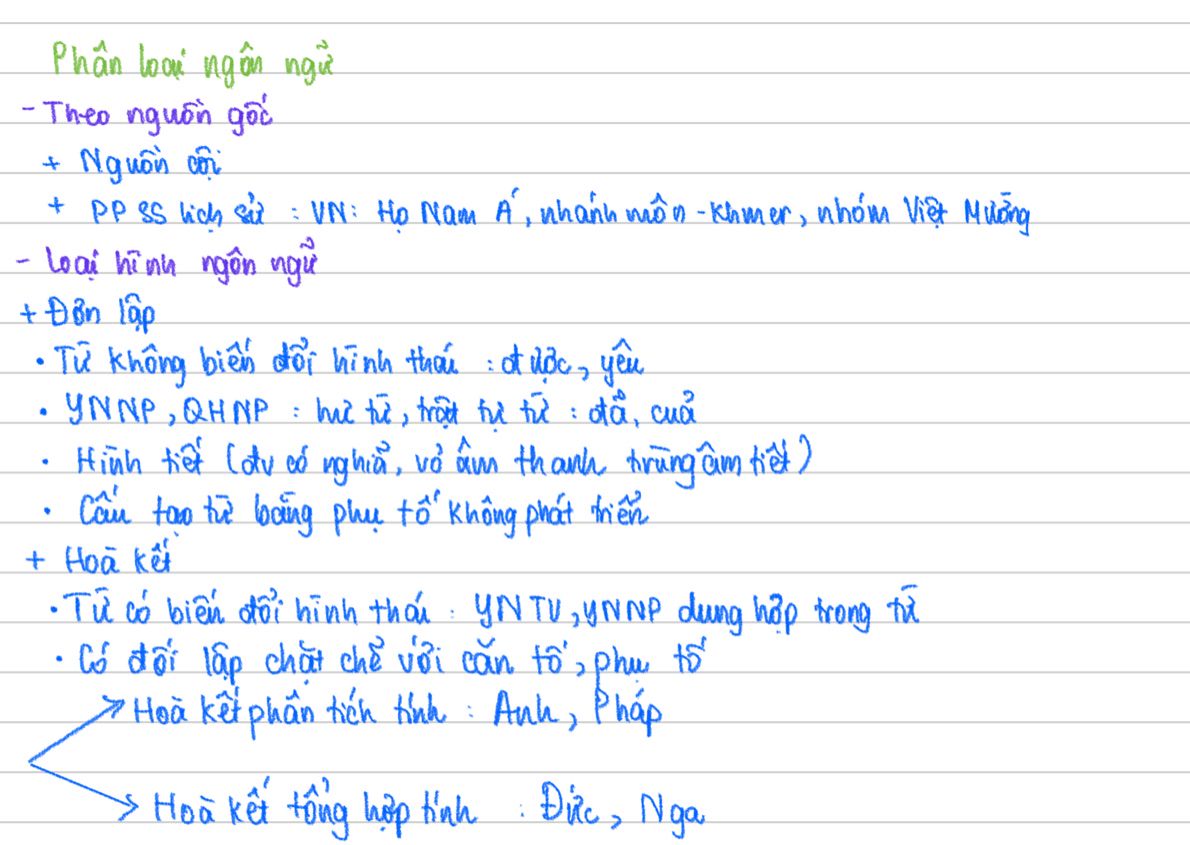 Phân loại ngôn ngữ
- Theo nguồn gốc
+ Nguồn cội
+ PP SS lịch sử : VN: Họ Nam Á, nhánh môn - Khmer, nhóm Việt Mường
- Loại hình ngôn ngữ
+ Đơn lập
• Từ không biến đổi hình thái : được, yêu
• YNNP, QHNP : hư từ, trật tự từ : đã, của
• Hình tiết (đv có nghĩa, vỏ âm thanh trùng âm tiết)
• Cấu tạo từ bằng phụ tố không phát triển
+ Hoà kết
• Từ có biến đổi hình thái : YNTV, YNNP dung hợp trong từ
• Có đối lập chặt chẽ với căn tố, phụ tố
Hoà kết phân tích tính : Anh, Pháp
Hoà kết tổng hợp tính : Đức, Nga